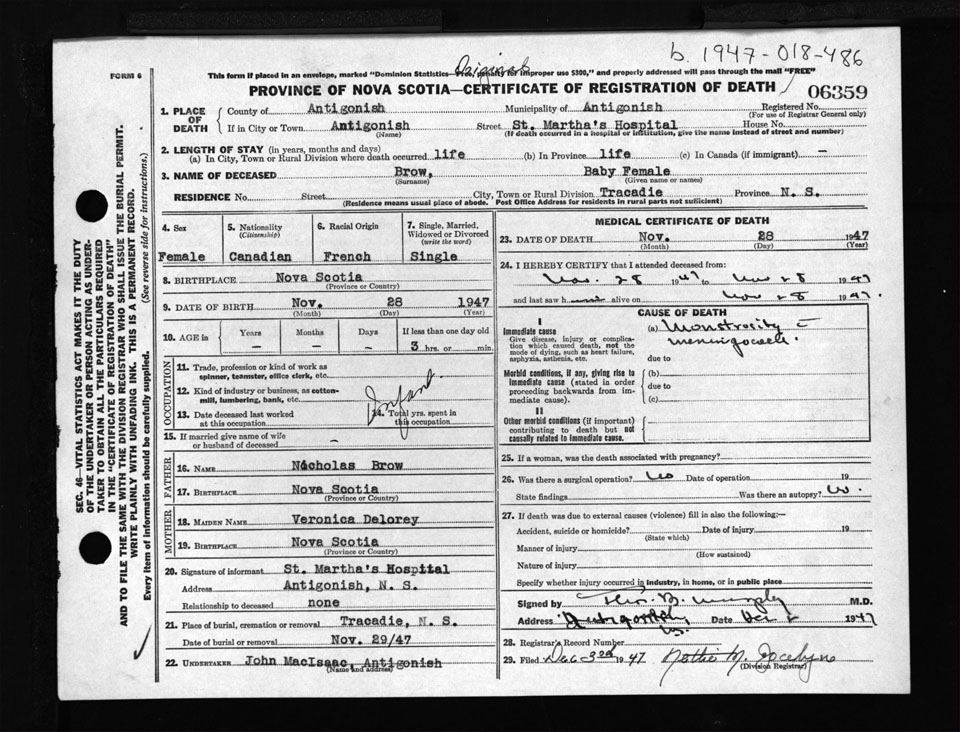 b. 1947-018-486
FORM 6
Original
This form if placed in an envelope, marked "Dominion Statistics—Free, penalty for improper use $300," and properly addressed will pass through the mail "FREE"
PROVINCE OF NOVA SCOTIA—CERTIFICATE OF REGISTRATION OF DEATH
06359
1. PLACE OF DEATH
County of Antigonish Municipality of Antigonish Registered No.
(For use of Registrar General only)
If in City or Town Antigonish Street St. Martha's Hospital House No.
(Name) (If death occurred in a hospital or institution, give the name instead of street and number)
2. LENGTH OF STAY (in years, months and days)
(a) In City, Town or Rural Division where death occurred life (b) In Province life (c) In Canada (if immigrant) —
3. NAME OF DECEASED Brow, Baby Female
(Surname) (Given name or names)
RESIDENCE No. Street City, Town or Rural Division Tracadie Province N. S.
(Residence means usual place of abode. Post Office Address for residents in rural parts not sufficient)
4. Sex
Female
5. Nationality
(Citizenship)
Canadian
6. Racial Origin
French
7. Single, Married, Widowed or Divorced
(write the word)
Single
8. BIRTHPLACE Nova Scotia
(Province or Country)
9. DATE OF BIRTH Nov. 28 1947
(Month) (Day) (Year)
10. AGE in
Years Months Days If less than one day old
— — — 3 hrs. or min.
OCCUPATION
11. Trade, profession or kind of work as spinner, teamster, office clerk, etc.
12. Kind of industry or business, as cotton-mill, lumbering, bank, etc.
Infant
13. Date deceased last worked at this occupation
14. Total yrs. spent in this occupation
15. If married give name of wife or husband of deceased —
FATHER
16. NAME Nicholas Brow
17. BIRTHPLACE Nova Scotia
(Province or Country)
MOTHER
18. MAIDEN NAME Veronica Delorey
19. BIRTHPLACE Nova Scotia
(Province or Country)
20. Signature of informant St. Martha's Hospital
Address Antigonish, N. S.
Relationship to deceased none
21. Place of burial, cremation or removal Tracadie, N. S.
Date of burial or removal Nov. 29/47
22. UNDERTAKER John MacIsaac, Antigonish
(Name and address)
MEDICAL CERTIFICATE OF DEATH
23. DATE OF DEATH Nov. 28 1947
(Month) (Day) (Year)
24. I HEREBY CERTIFY that I attended deceased from:
Nov. 28 1947 to Nov 28 1947
and last saw h alive on Nov 28 1947.
CAUSE OF DEATH
I
Immediate cause
Give disease, injury or complication which caused death, not the mode of dying, such as heart failure, asphyxia, asthenia, etc.
(a) Monstrosity c̄
meningocele.
due to
Morbid conditions, if any, giving rise to immediate cause (stated in order proceeding backwards from immediate cause).
(b)
due to
(c)
II
Other morbid conditions (if important) contributing to death but not causally related to immediate cause.
25. If a woman, was the death associated with pregnancy?
26. Was there a surgical operation? no Date of operation 19
State findings Was there an autopsy?
27. If death was due to external causes (violence) fill in also the following:—
Accident, suicide or homicide? Date of injury 19
(State which)
Manner of injury
(How sustained)
Nature of injury
Specify whether injury occurred in industry, in home, or in public place
Signed by Murphy M.D.
Address Antigonish, Date Dec 2 1947
N.S.
28. Registrar's Record Number
29. Filed Dec 3rd 1947 Nettie M. Jocelyne
(Division Registrar)
SEC. 46—VITAL STATISTICS ACT MAKES IT THE DUTY
OF THE UNDERTAKER OR PERSON ACTING AS UNDER-
TAKER TO OBTAIN ALL THE PARTICULARS REQUIRED
IN THE "CERTIFICATE OF REGISTRATION OF DEATH"
AND TO FILE THE SAME WITH THE DIVISION REGISTRAR WHO SHALL ISSUE THE BURIAL PERMIT.
WRITE PLAINLY WITH UNFADING INK. THIS IS A PERMANENT RECORD.
Every item of information should be carefully supplied. (See reverse side for instructions.)